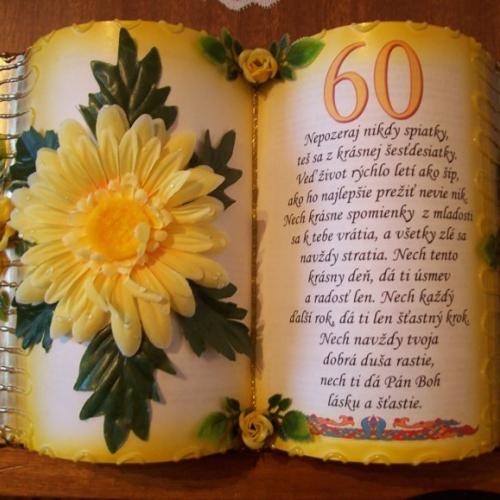 60
Nepozeraj nikdy spiatky,
teš sa z krásnej šesťdesiatky.
Veď život rýchlo letí ako šíp,
ako ho najlepšie prežiť nevie nik.
Nech krásne spomienky z mladosti
sa k tebe vrátia, a všetky zlé sa
navždy stratia. Nech tento
krásny deň, dá ti úsmev
a radosť len. Nech každý
ďalší rok, dá ti len šťastný krok.
Nech navždy tvoja
dobrá duša rastie,
nech ti dá Pán Boh
lásku a šťastie.